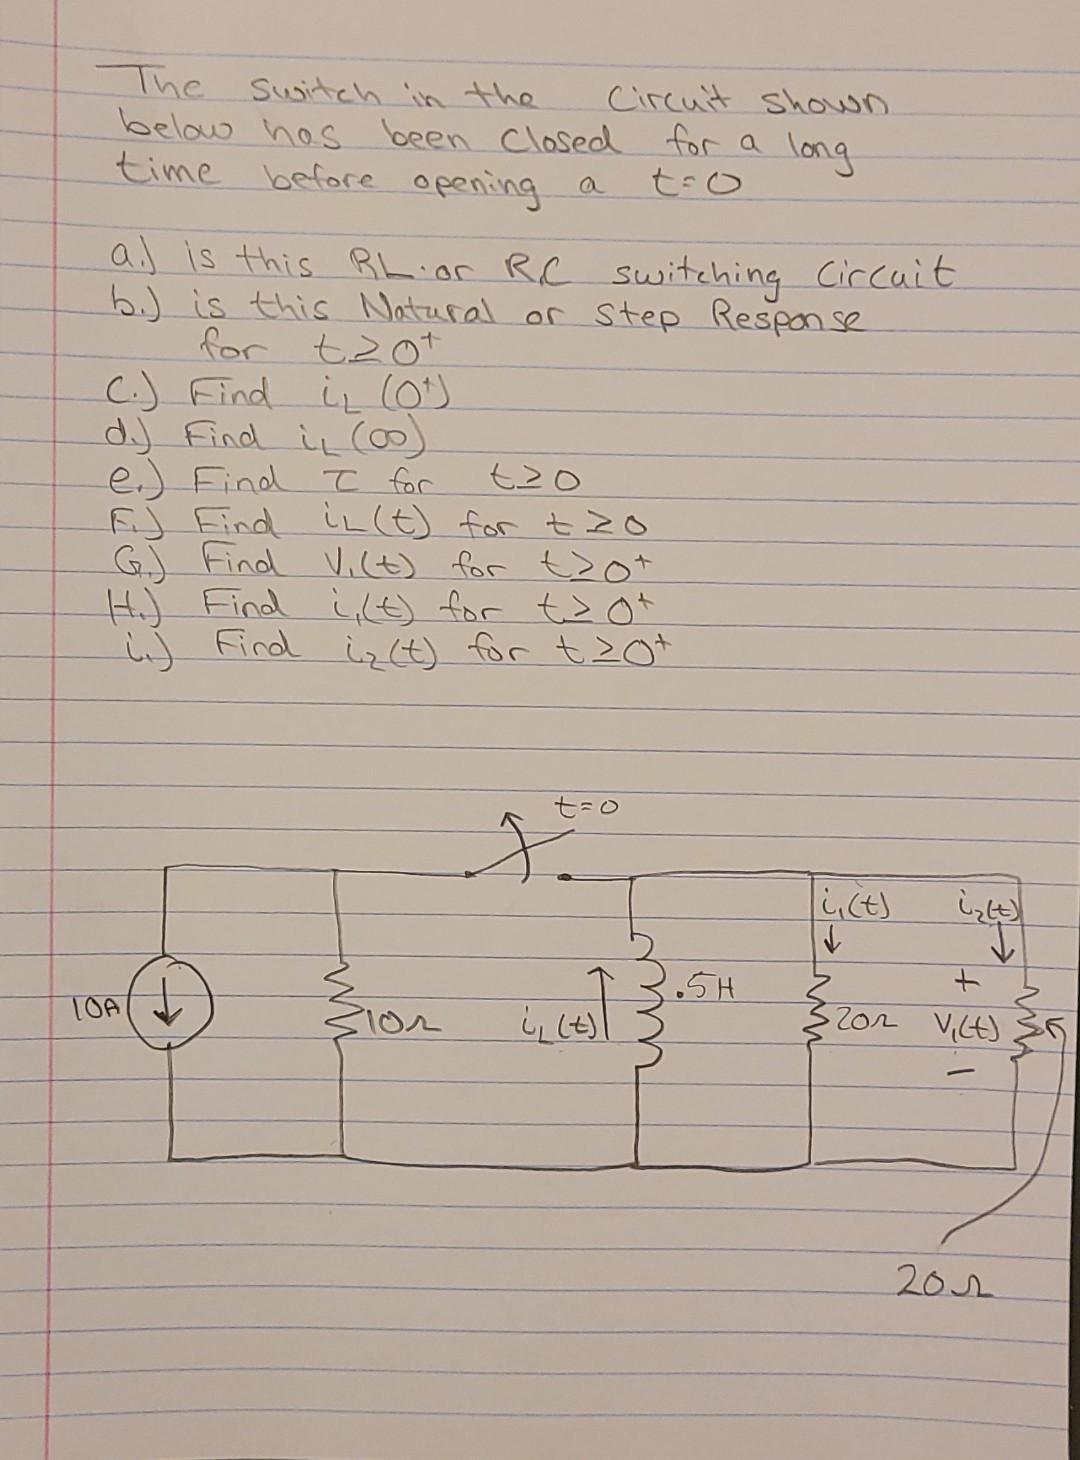 The switch in the Circuit shown
below has been Closed for a long
time before opening a t=0
a.) is this RL or RC switching Circuit
b.) is this Natural or Step Response
for t≥0⁺
C.) Find i_L (0⁺)
d.) Find i_L (∞)
e.) Find τ for t≥0
F.) Find i_L(t) for t≥0
G.) Find V₁(t) for t≥0⁺
H.) Find i₁(t) for t≥0⁺
i.) Find i₂(t) for t≥0⁺
t=0
i₁(t) i₂(t)
10A 10Ω i_L(t) .5H 20Ω + V₁(t) −
20Ω